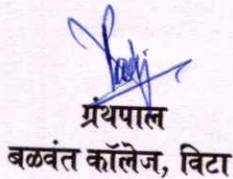 ग्रंथपाल
बळवंत कॉलेज, विटा